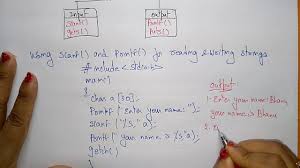 Input
Scanf()
gets()
output
Printf()
Puts()
Using Scanf() and Printf() for reading & writing strings
# include <stdio.h>
main()
{
char a[50];
Printf("Enter your name:");
Scanf("%s", a);
Printf("your name is %s", a);
getch();
output
1. Enter your name: Bhanu
your name is Bhanu
2.